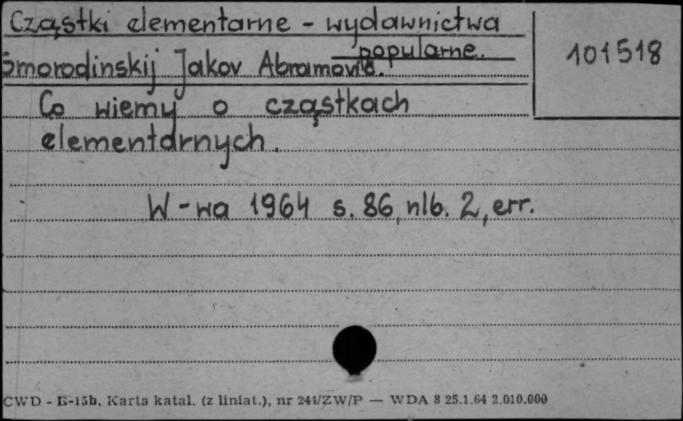 Cząstki elementarne - wydawnictwa
popularne.
101518
Smorodinskij Jakov Abramovič.
Co wiemy o cząstkach
elementarnych.
W-wa 1964 s. 86, nlb. 2, err.
CWD - B-15b, Karta katal. (z liniat.), nr 241/ZW/P — WDA 8 25.1.64 2.010.000